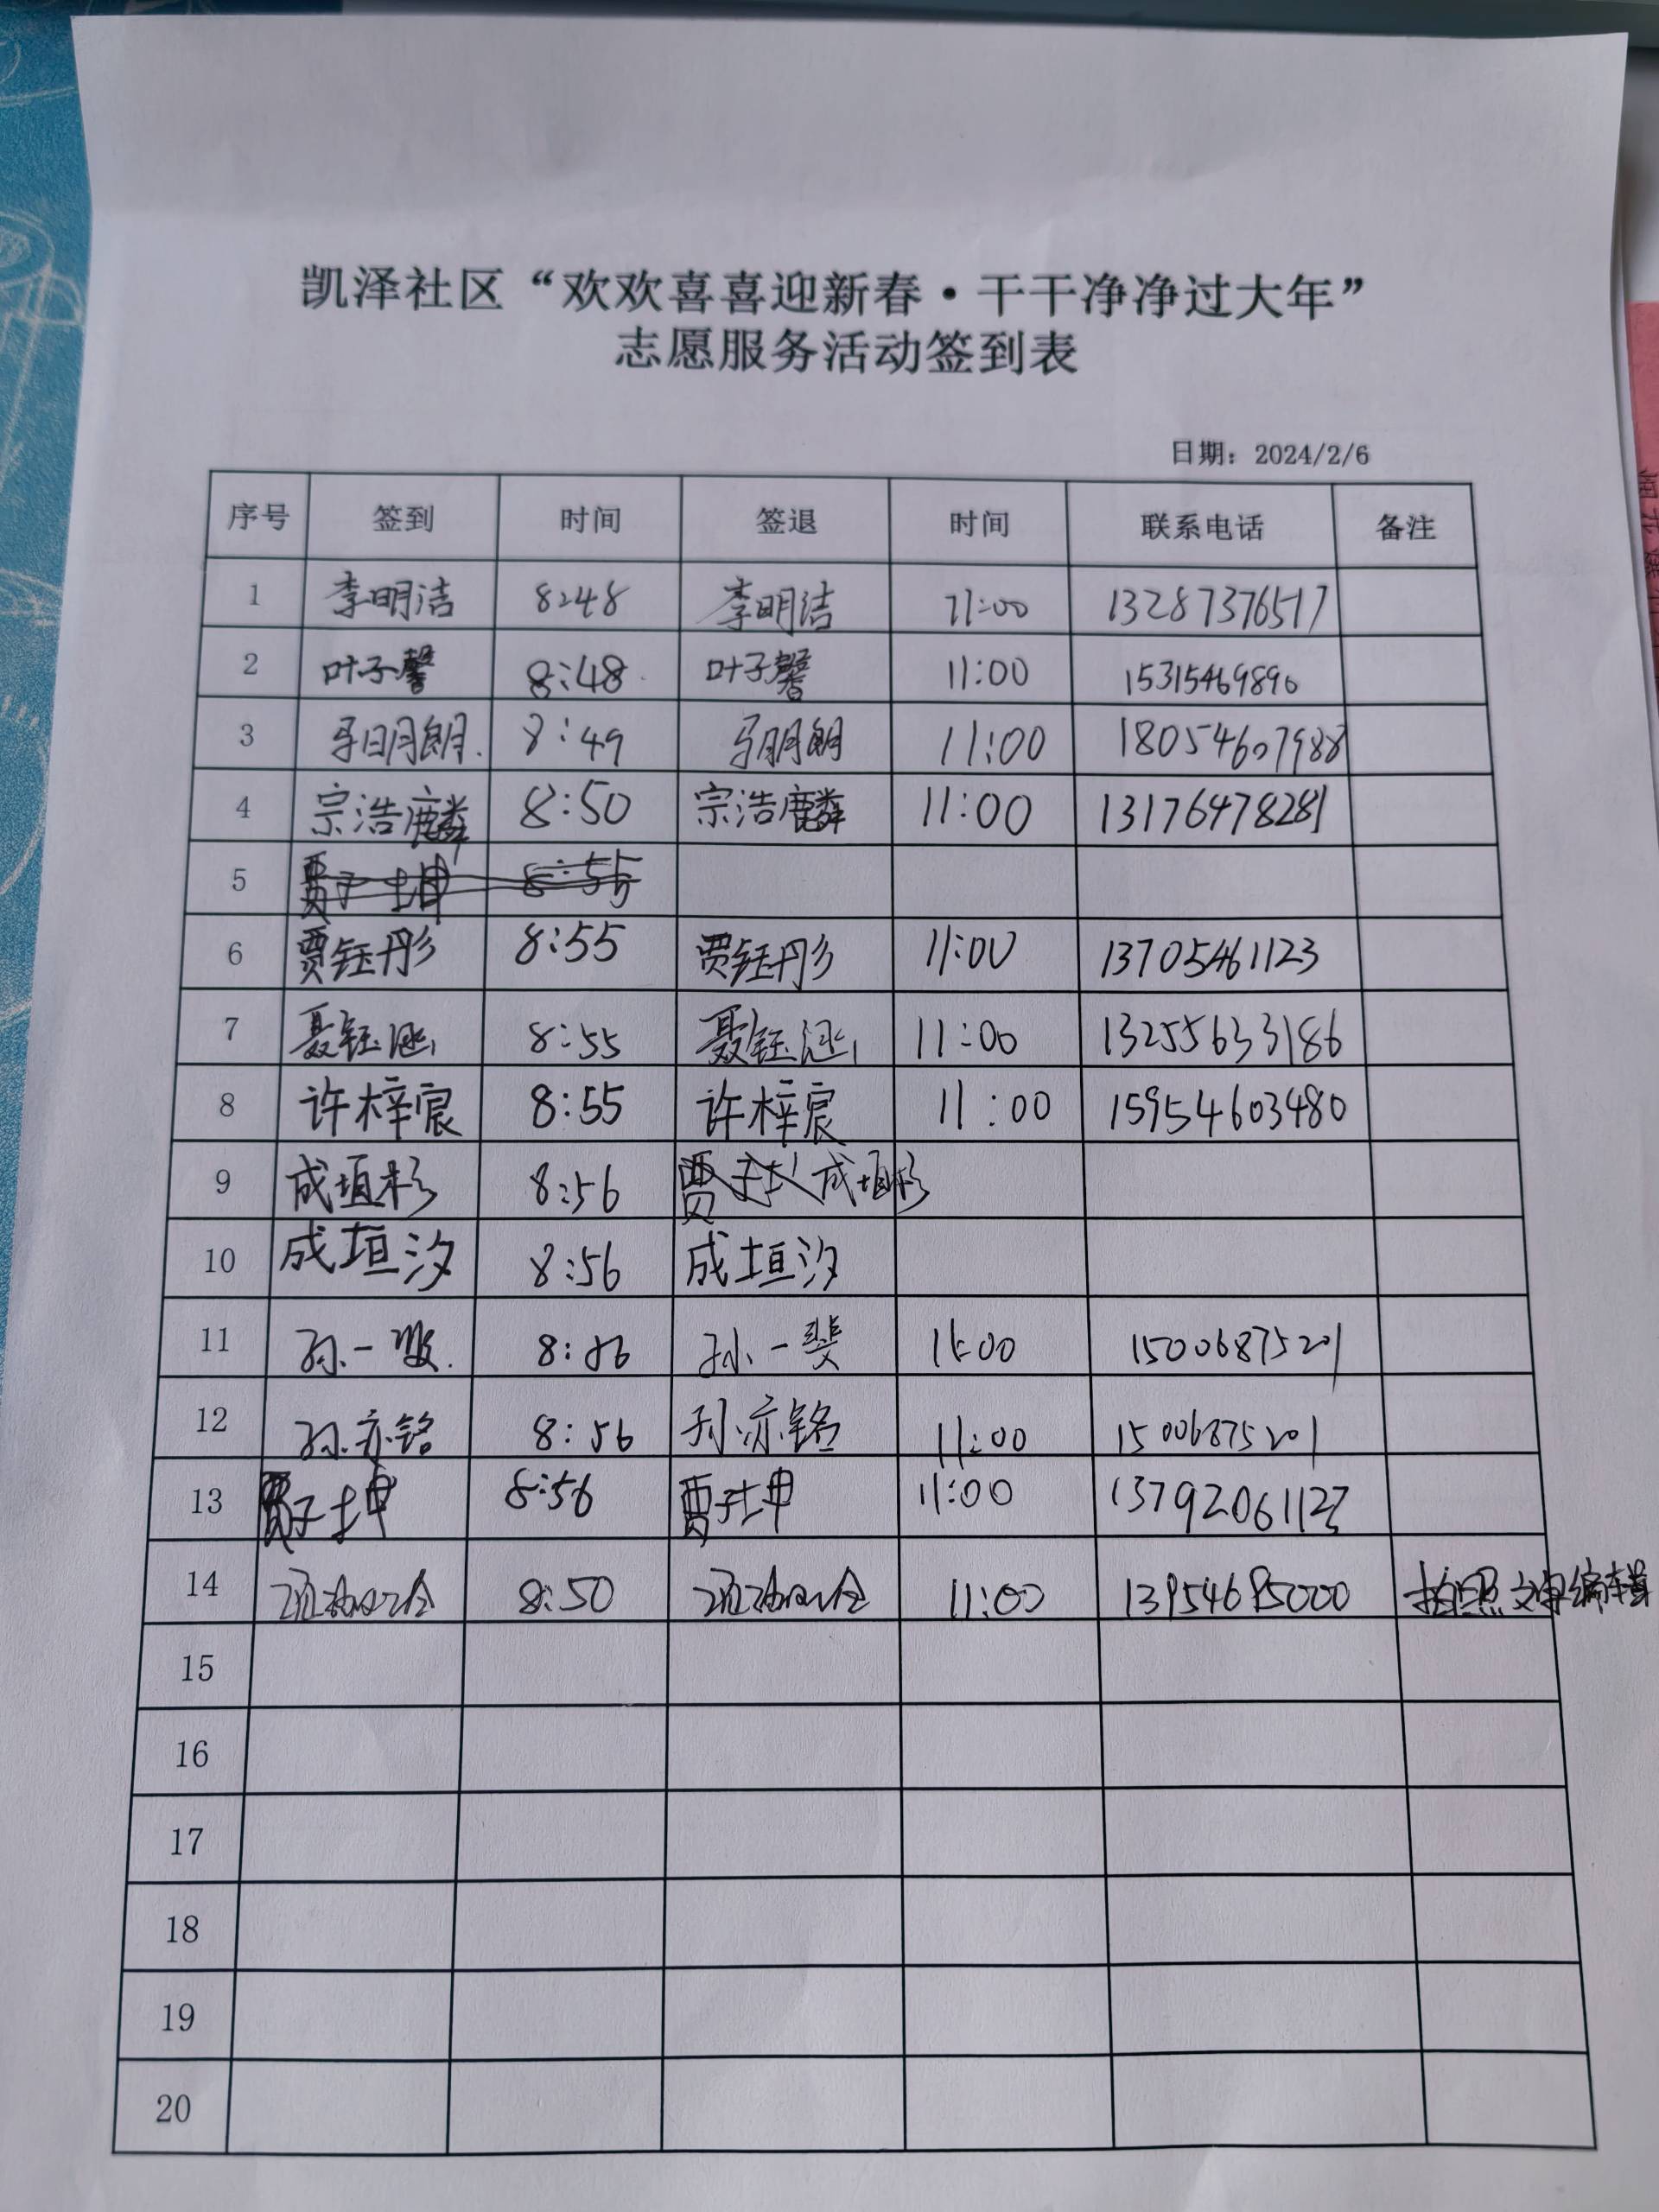 凯泽社区“欢欢喜喜迎新春·干干净净过大年”
志愿服务活动签到表
日期：2024/2/6
序号 签到 时间 签退 时间 联系电话 备注
1 李明洁 8:48 李明洁 11:00 13287376517
2 叶子馨 8:48 叶子馨 11:00 15315469890
3 马明朗 8:49 马明朗 11:00 18054607988
4 宗浩麟 8:50 宗浩麟 11:00 13176478281
5 贾子坤 8:55
6 贾钰彤 8:55 贾钰彤 11:00 13705461123
7 聂钰涵 8:55 聂钰涵 11:00 13255633186
8 许梓宸 8:55 许梓宸 11:00 15954603480
9 成垣杉 8:56 贾 成垣杉
10 成垣汐 8:56 成垣汐
11 孙一 8:56 孙一斐 11:00 15006875201
12 孙亦铭 8:56 孙亦铭 11:00 15006875201
13 贾子坤 8:56 贾子坤 11:00 13792061123
14 8:50 11:00 13954685000 拍照 文字编辑
15
16
17
18
19
20